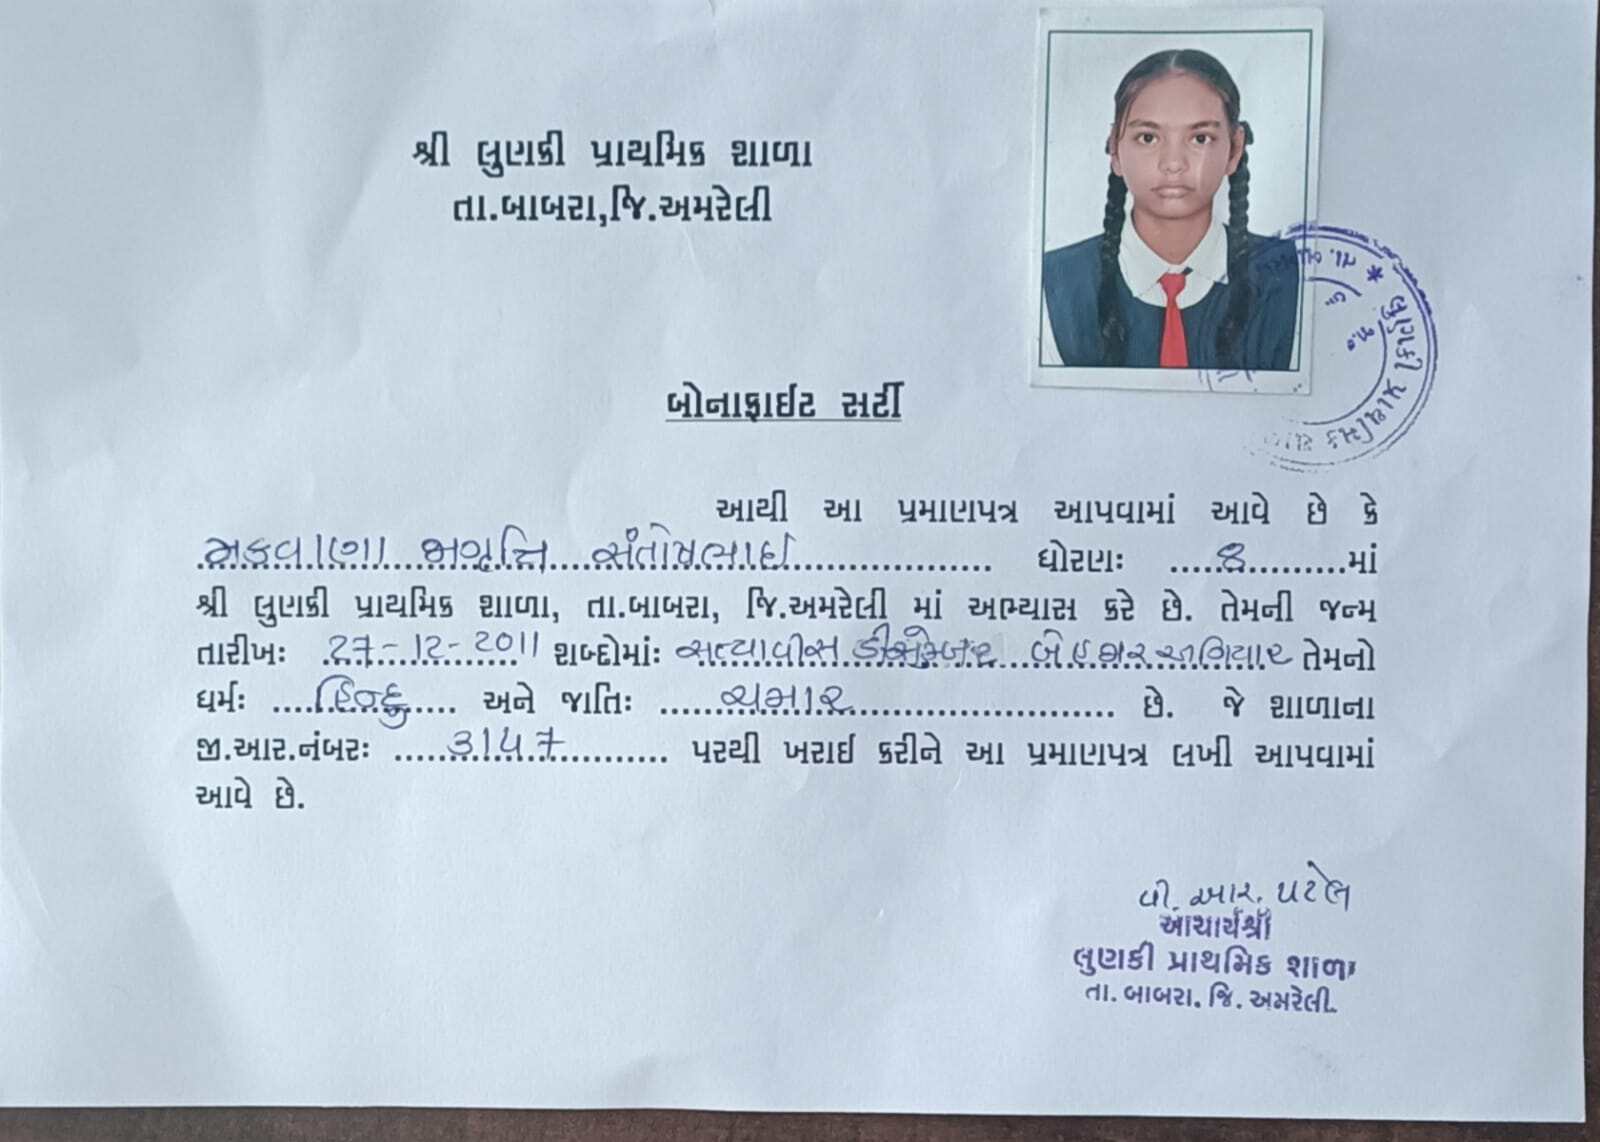 શ્રી લુણકી પ્રાથમિક શાળા
તા.બાબરા,જિ.અમરેલી
તા. બાબરા * લુણકી પ્રાથમિક શાળા
બોનાફાઈટ સર્ટી
આથી આ પ્રમાણપત્ર આપવામાં આવે છે કે
મકવાણા જાગૃત્તિ સંતોષભાઇ ધોરણઃ 8 માં
શ્રી લુણકી પ્રાથમિક શાળા, તા.બાબરા, જિ.અમરેલી માં અભ્યાસ કરે છે. તેમની જન્મ
તારીખઃ 27-12-2011 શબ્દોમાંઃ સત્યાવીસ ડીસેમ્બર બે હજાર અગિયાર તેમનો
ધર્મઃ હિન્દુ અને જાતિઃ ચમાર છે. જે શાળાના
જી.આર.નંબરઃ 3147 પરથી ખરાઈ કરીને આ પ્રમાણપત્ર લખી આપવામાં
આવે છે.
વી. આર. પટેલ
આચાર્યશ્રી
લુણકી પ્રાથમિક શાળા
તા. બાબરા. જિ. અમરેલી.